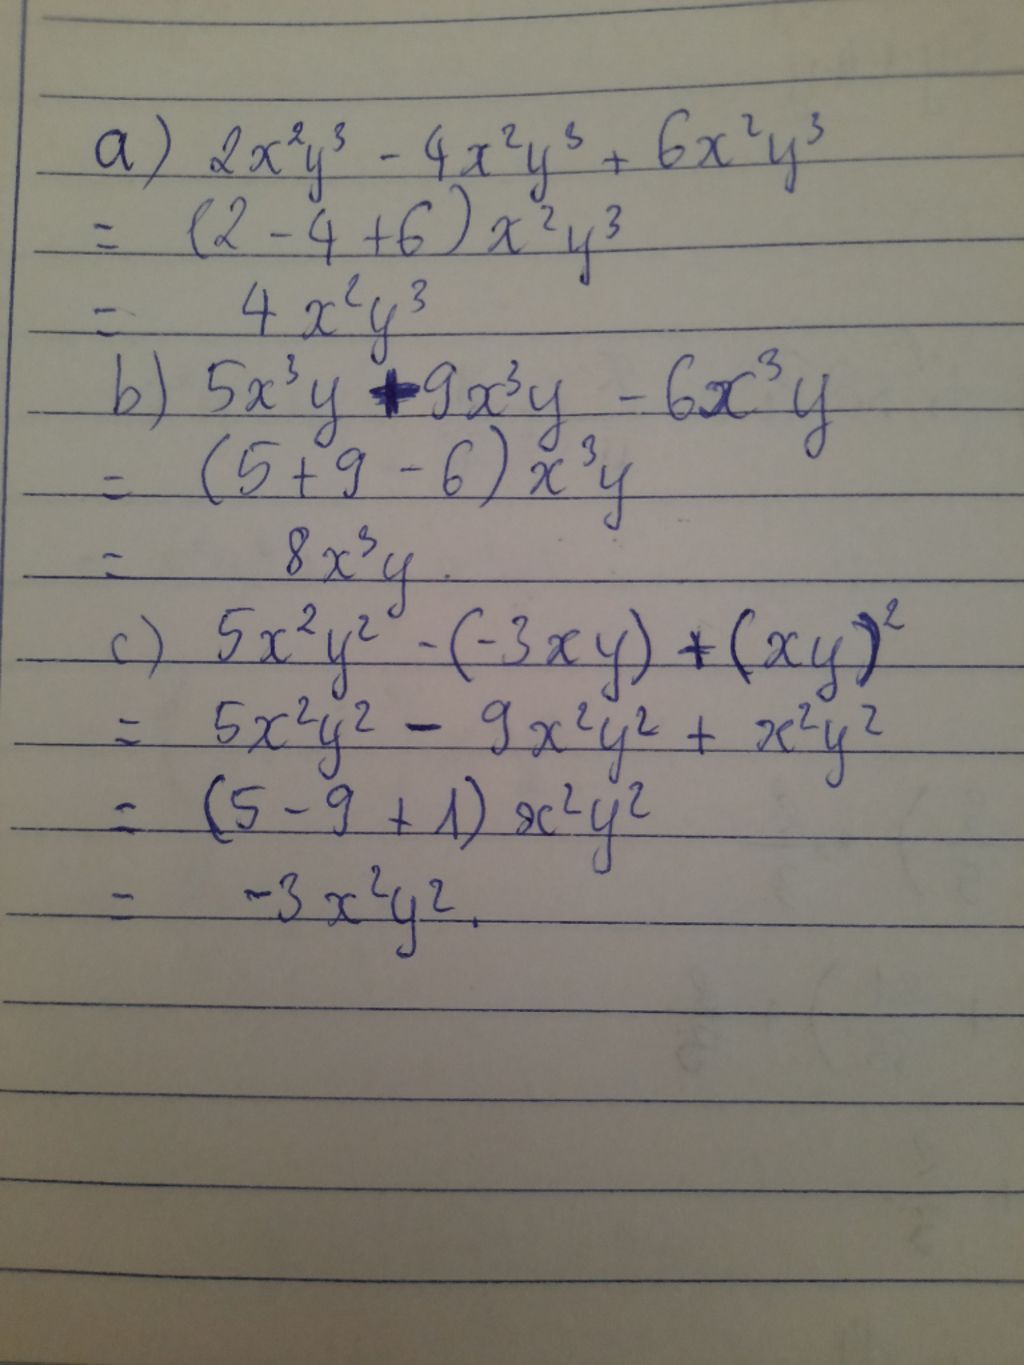 a) 2x²y³ - 4x²y³ + 6x²y³
= (2 - 4 + 6) x²y³
= 4 x²y³
b) 5x³y + 9x³y - 6x³y
= (5 + 9 - 6) x³y
= 8x³y.
c) 5x²y² - (-3xy) + (xy)²
= 5x²y² - 9x²y² + x²y²
= (5 - 9 + 1) x²y²
= -3 x²y².